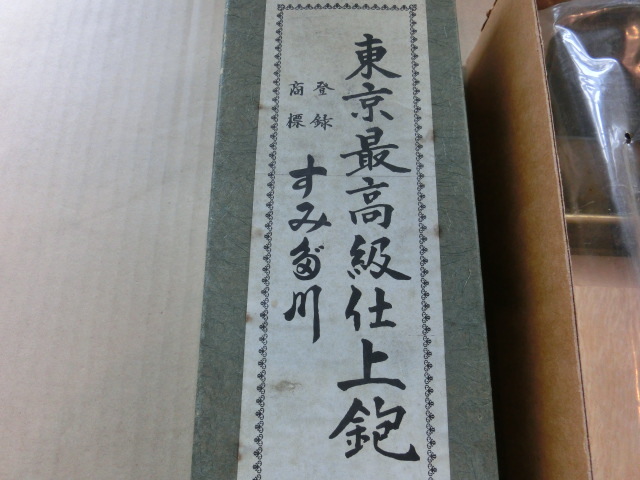 東京最高級仕上鉋
登録
商標
すみだ川